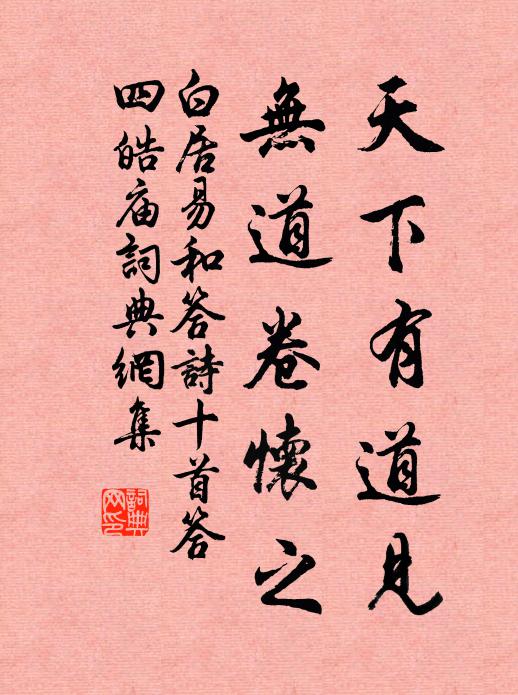 天下有道見
無道卷懷之
白居易和答詩十首答
四皓庙詞典網集
詞典网印